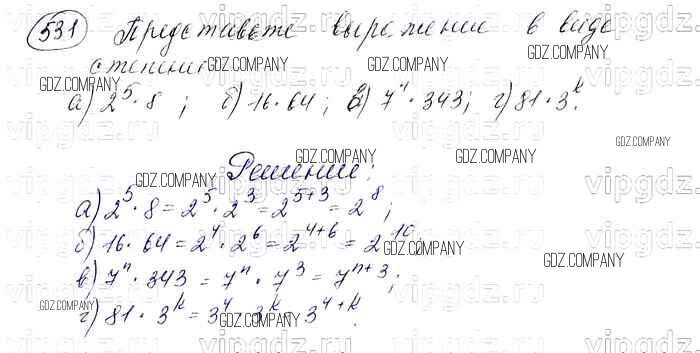 531 Представьте выражение в виде
степени:
а) 2⁵ · 8 ; б) 16 · 64 ; в) 7ⁿ · 343; г) 81 · 3ᵏ.
Решение:
а) 2⁵ · 8 = 2⁵ · 2³ = 2⁵⁺³ = 2⁸ ;
б) 16 · 64 = 2⁴ · 2⁶ = 2⁴⁺⁶ = 2¹⁰;
в) 7ⁿ · 343 = 7ⁿ · 7³ = 7ⁿ⁺³ ;
г) 81 · 3ᵏ = 3⁴ · 3ᵏ = 3⁴⁺ᵏ.